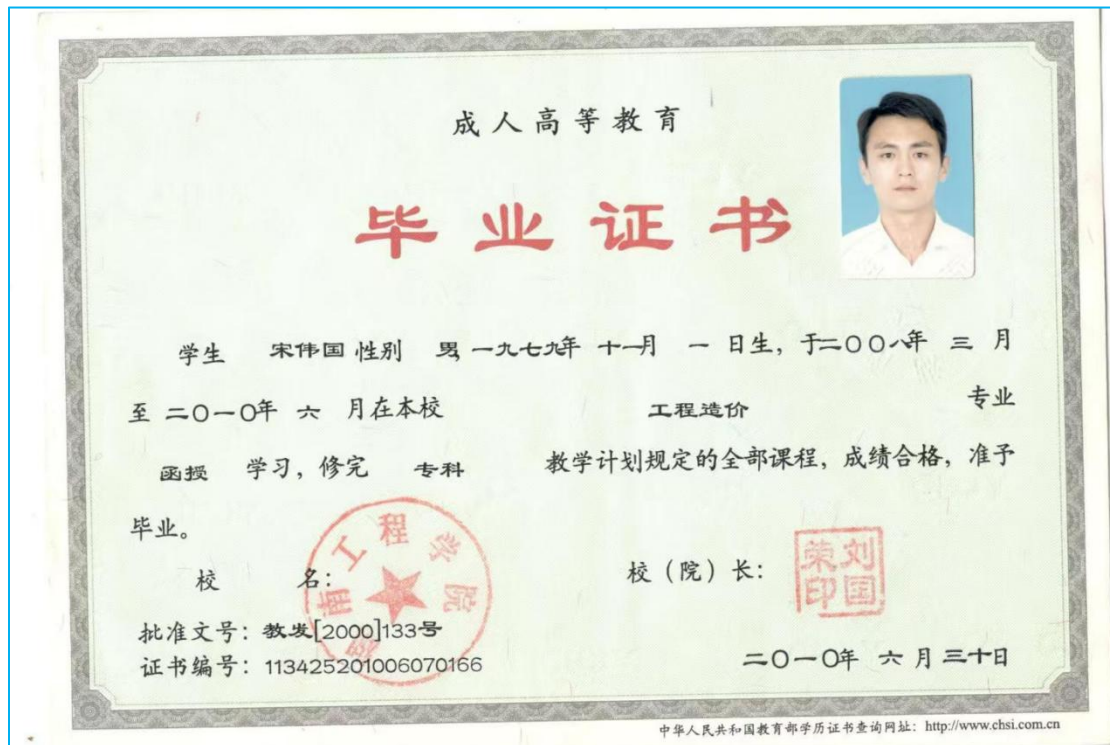 成人高等教育
毕业证书
学生 宋伟国 性别 男, 一九七九年 十一月 一 日生, 于二〇〇八年 三 月
至 二〇一〇年 六 月在本校 工程造价 专业
函授 学习, 修完 专科 教学计划规定的全部课程, 成绩合格, 准予
毕业。
校 名: 南工程学院
校（院）长: 刘国荣印
批准文号: 教发[2000]133号
证书编号: 113425201006070166
二〇一〇年 六 月 三十日
中华人民共和国教育部学历证书查询网址: http://www.chsi.com.cn